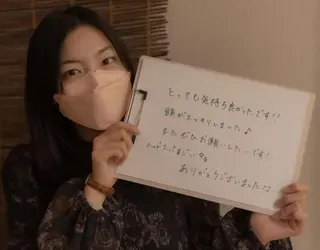 とっても気持ち良かったです!!
頭がスッキリしました♪
またぜひお願いしたいです!
ありがとうございました♪